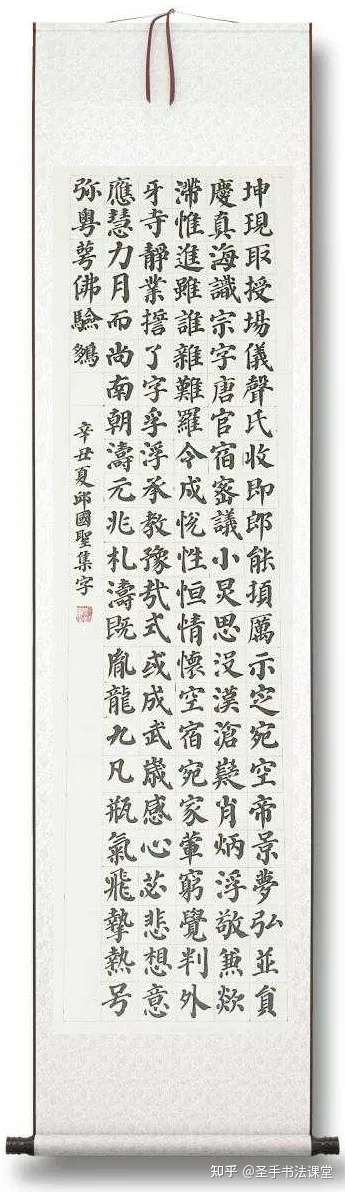 坤現取授場儀聲氏收即郎能須厲示定宛空帝景夢弘並貟
慶真海識宗字唐官宿密議小炅思没漠滄疑肖炳浮敬兼欻
滯惟進雖誰雜難羅令成悅性恒情懷空宿宛家葷窮覺判外
牙寺靜業撎了字孚浮承教豫哉式或成武歲感心苾悲想意
應慧力月而尚南朝濤元兆札濤既胤龍九凡瓶氣飛摯熱号
弥粵萼佛驗鷄
辛丑夏邱國聖集字
知乎 @圣手书法课堂